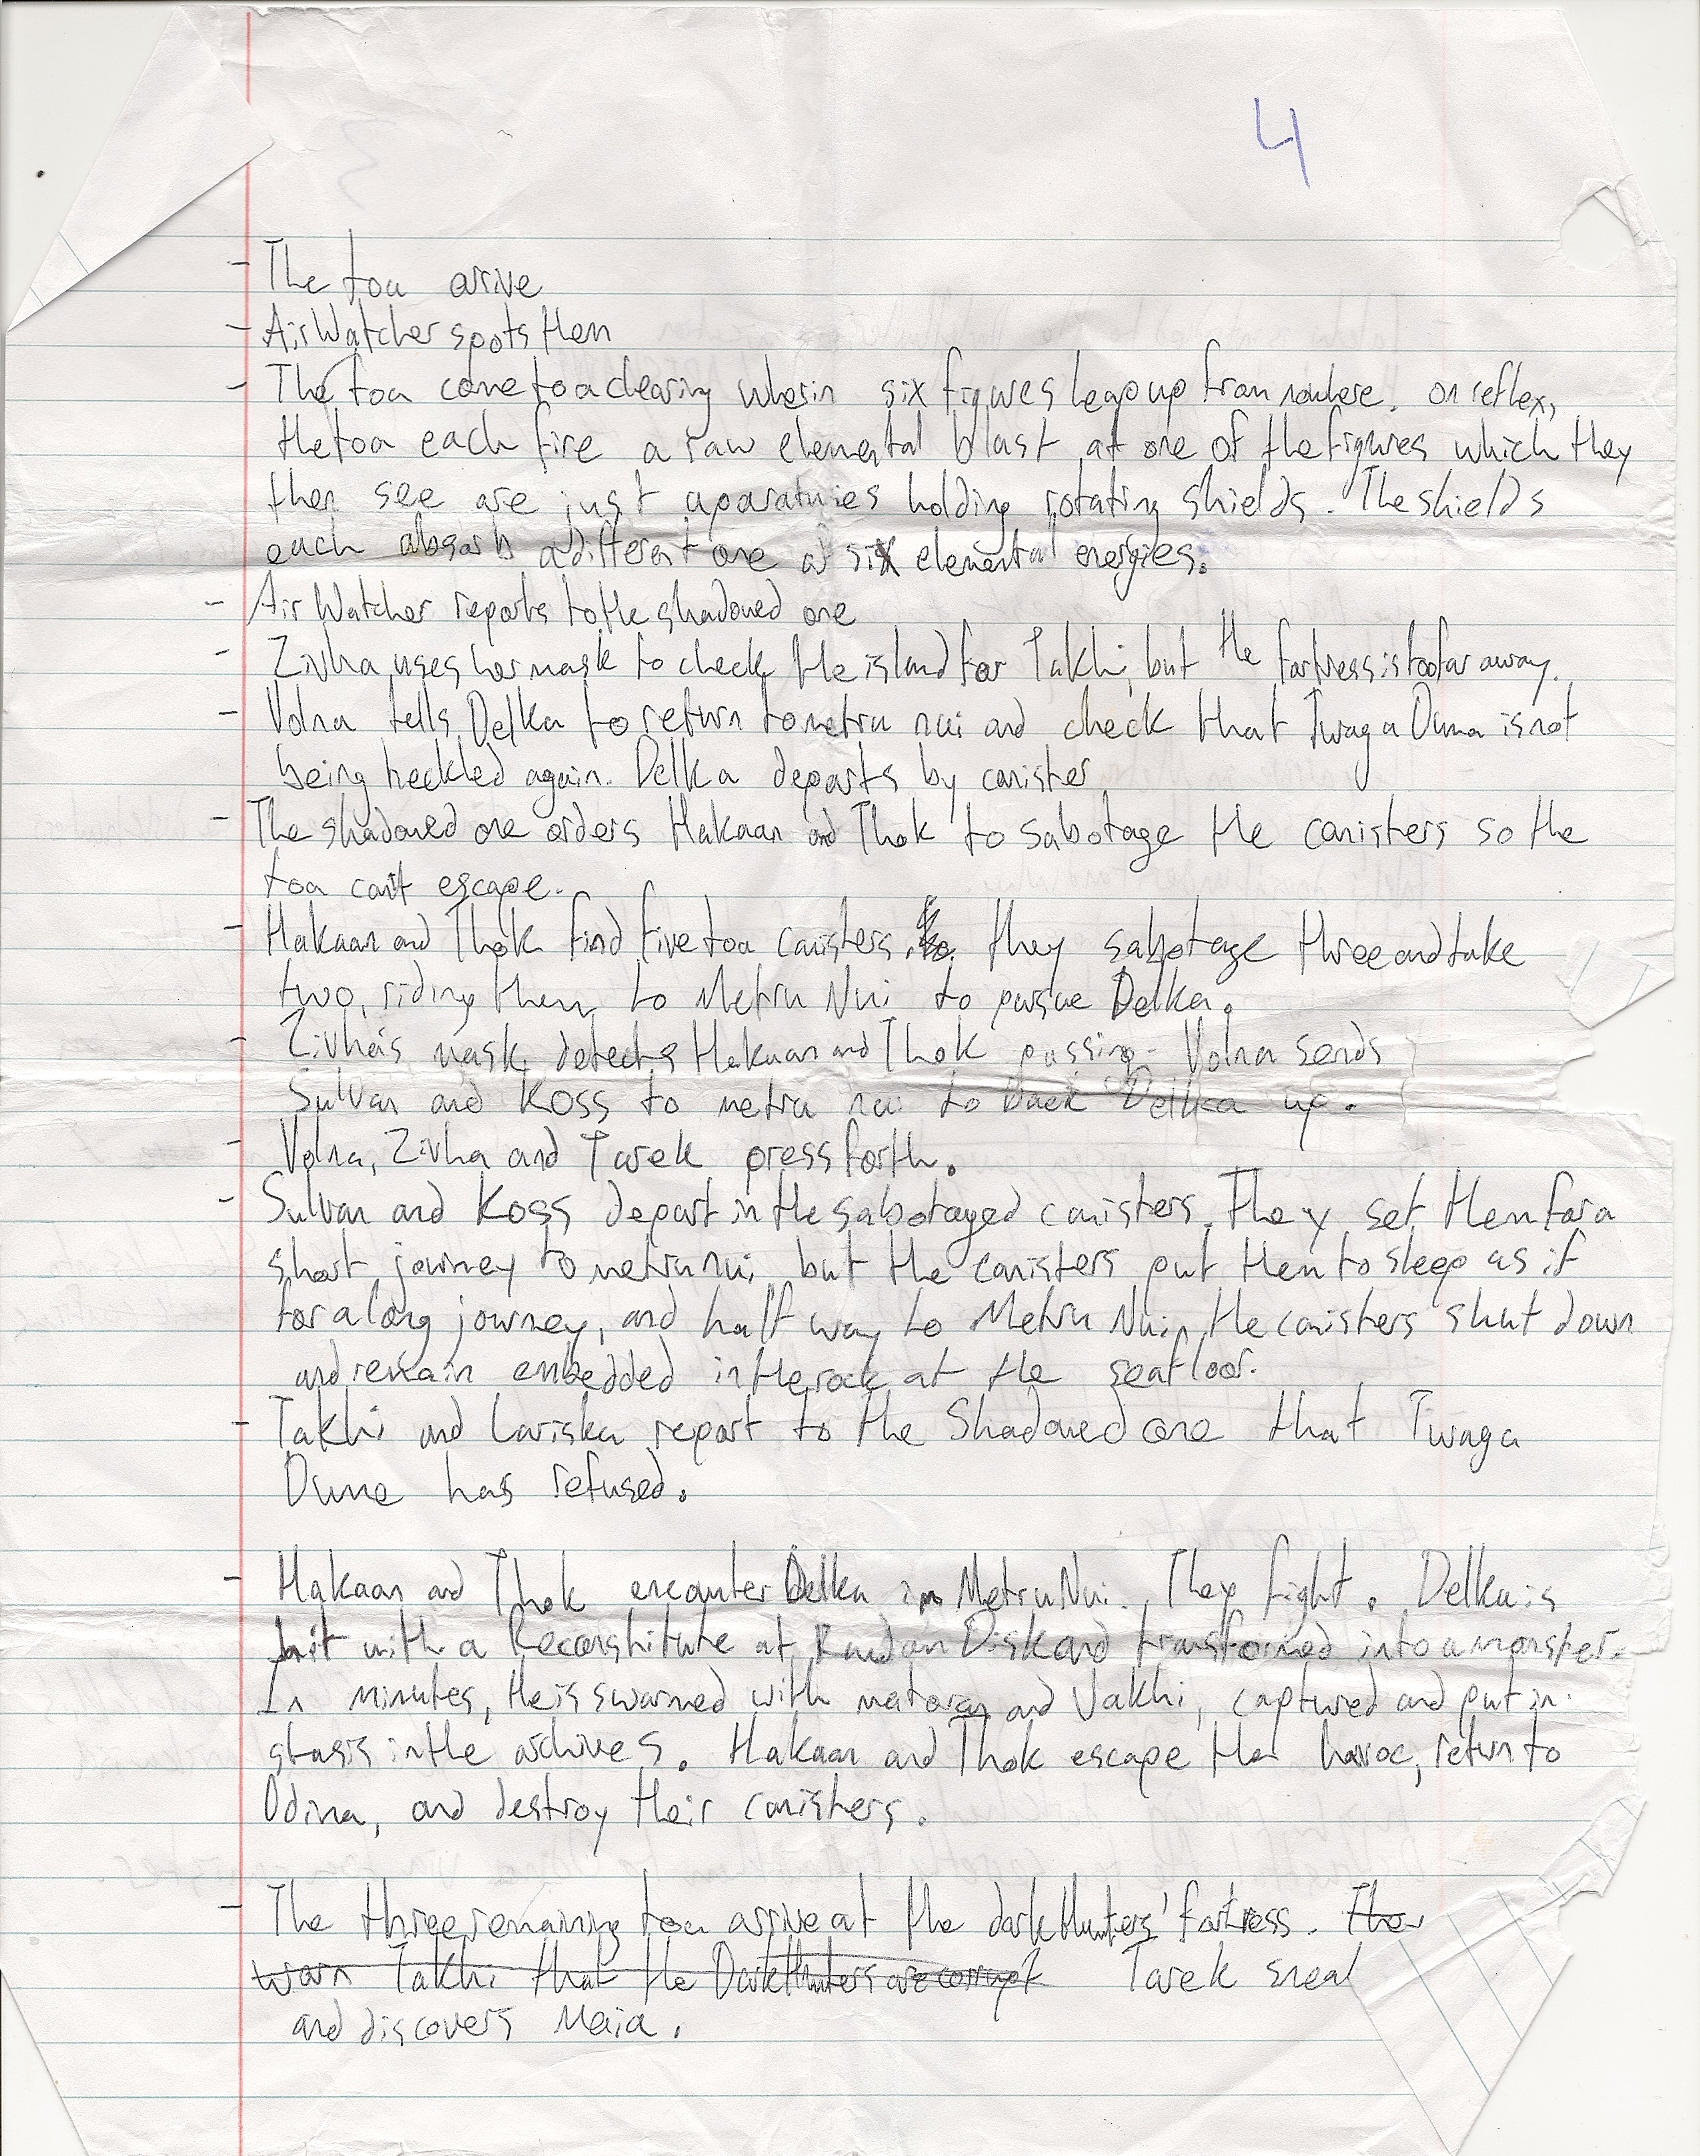 4
- The toa arive
- AirWatcher spots them
- The toa come to a clearing wherin six figures leap up from nowhere. on reflex,
the toa each fire a raw elemental blast at one of the figures which they
then see are just aparatuses holding rotating shields. The shields
each absorb a different one of six elemental energies.
- Air Watcher reports to the shadowed one
- Zivha uses her mask to check the island for Takhi, but the fortress is too far away.
- Volna tells Delka to return to metru nui and check that Twaga Duma is not
being heckled again. Delka departs by canister
- The shadowed one orders Hakaan and Thok to sabotage the canisters so the
toa can't escape.
- Hakaan and Thok find five toa canisters. they sabotage three and take
two, riding them to Metru Nui to pursue Delka.
- Zivha's mask detects Hakaan and Thok passing. Volna sends
Sulvan and Koss to metru nui to back Delka up.
- Volna, Zivha and Tarek press forth.
- Sulvan and Koss depart in the sabotaged canisters. They set them for a
short journey to metru nui, but the canisters put them to sleep as if
for a long journey, and half way to Metru Nui, the canisters shut down
and remain embedded in the rock at the seafloor.
- Takhi and Lariska report to the Shadowed one that Twaga
Dume has refused.
- Hakaan and Thok encounter Delka in Metru Nui. They fight. Delka is
hit with a Reconstitute at Random Disk and transformed into a monster.
In minutes, He is swarmed with matoran and Vakhi, captured and put in
stasis in the archives. Hakaan and Thok escape the havoc, return to
Odina, and destroy their canisters.
- The three remaining toa arrive at the dark Hunters' fortress. They
warn Takhi that the Dark Hunters are corrupt Tarek
and discovers Maia.